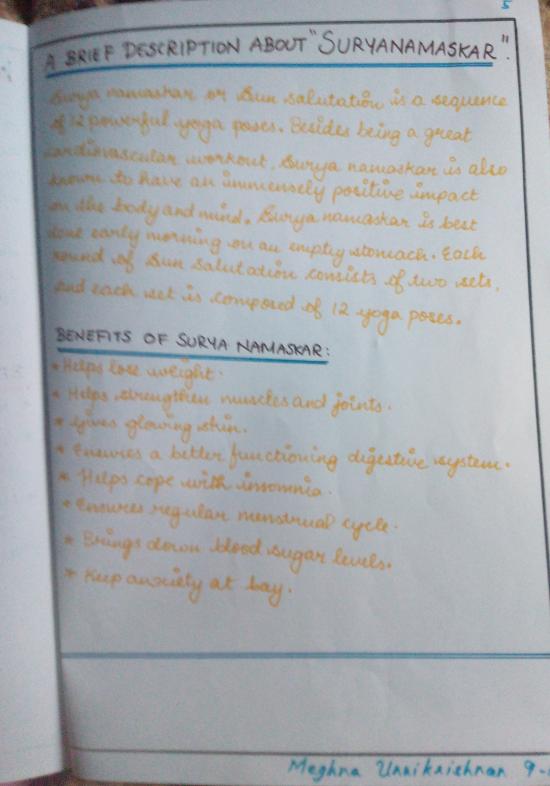 5
A BRIEF DESCRIPTION ABOUT "SURYANAMASKAR".
Surya namaskar or Sun salutation is a sequence
of 12 powerful yoga poses. Besides being a great
cardiovascular workout, Surya namaskar is also
known to have an immensely positive impact
on the body and mind. Surya namaskar is best
done early morning on an empty stomach. Each
round of Sun salutation consists of two sets,
and each set is composed of 12 yoga poses.
BENEFITS OF SURYA NAMASKAR:
* Helps lose weight.
* Helps strengthen muscles and joints.
* Gives glowing skin.
* Ensures a better functioning digestive system.
* Helps cope with insomnia.
* Ensures regular menstrual cycle.
* Brings down blood sugar levels.
* Keep anxiety at bay.
Meghna Unnikrishnan 9-